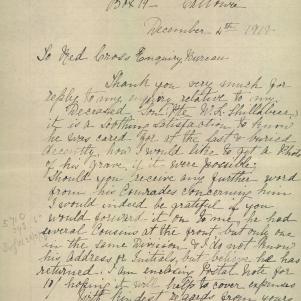 Box 19
December 4th 1919
To Red Cross Enquiry Bureau
Thank you very much for
reply to my enquiry relative to my
Deceased Son, Pte W. L. Shillabeer
it is a soothing satisfaction to know
he was cared for at the last & buried
decently, how I would like to get a Photo
of his Grave if it were possible.
Should you receive any further word
from his Comrades concerning him
I would indeed be grateful if you
would forward it on to me, he had
several Cousins at the front but only one
in the same Division & I do not know
his Address or Initials, but believe he has
returned. I am enclosing Postal Note for
10/ hoping it will help to cover expenses
With kindest regards from yours